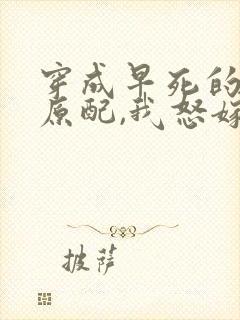 穿成早死的
原配,我怒嫁
披萨